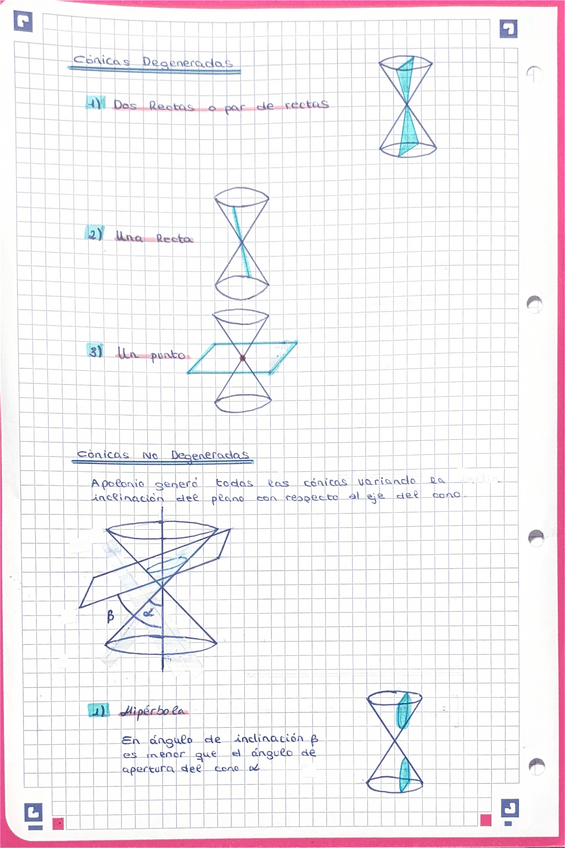 Cónicas Degeneradas
1) Dos Rectas o par de rectas
2) Una Recta
3) Un punto
Cónicas No Degeneradas
Apolonio generó todas las cónicas variando la
inclinación del plano con respecto al eje del cono.
β α
1) Hipérbola
En ángulo de inclinación β
es menor que el ángulo de
apertura del cono α